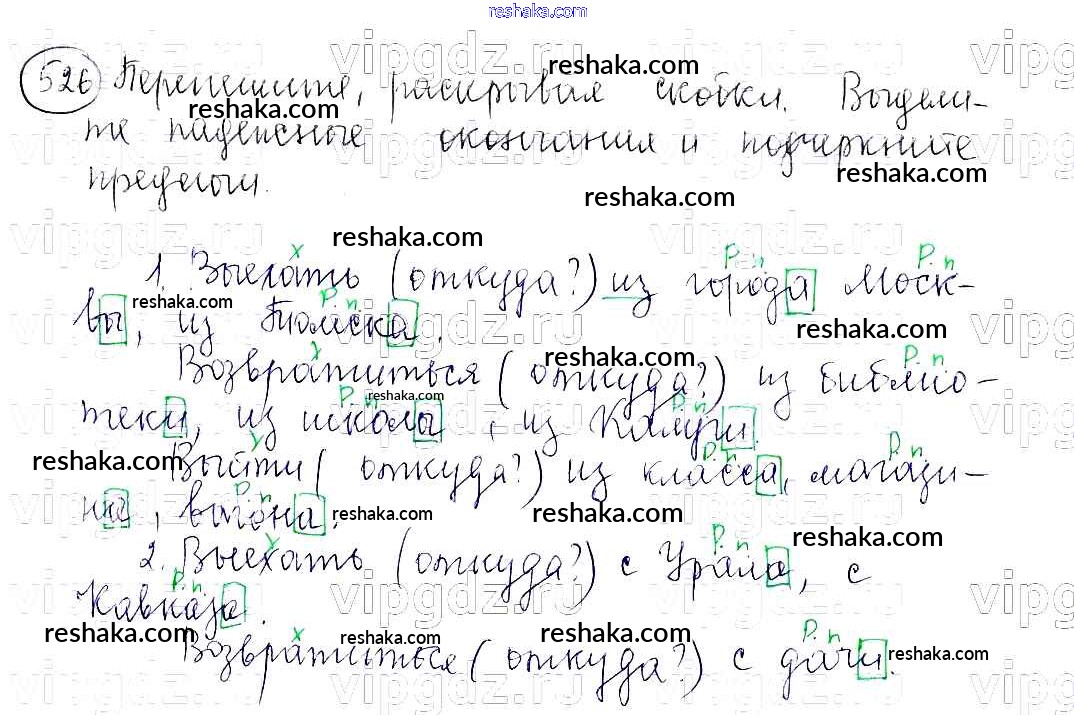 reshaka.com
526 Перепишите, раскрывая скобки. Выдели-
те падежные окончания и подчеркните
предлоги.
1. Выехать (откуда?) из города Моск-
вы, из Томска.
Возвратиться (откуда?) из библио-
теки, из школы, из Калуги.
Выйти (откуда?) из класса, магази-
на, вагона.
2. Выехать (откуда?) с Урала, с
Кавказа.
Возвратиться (откуда?) с дачи.